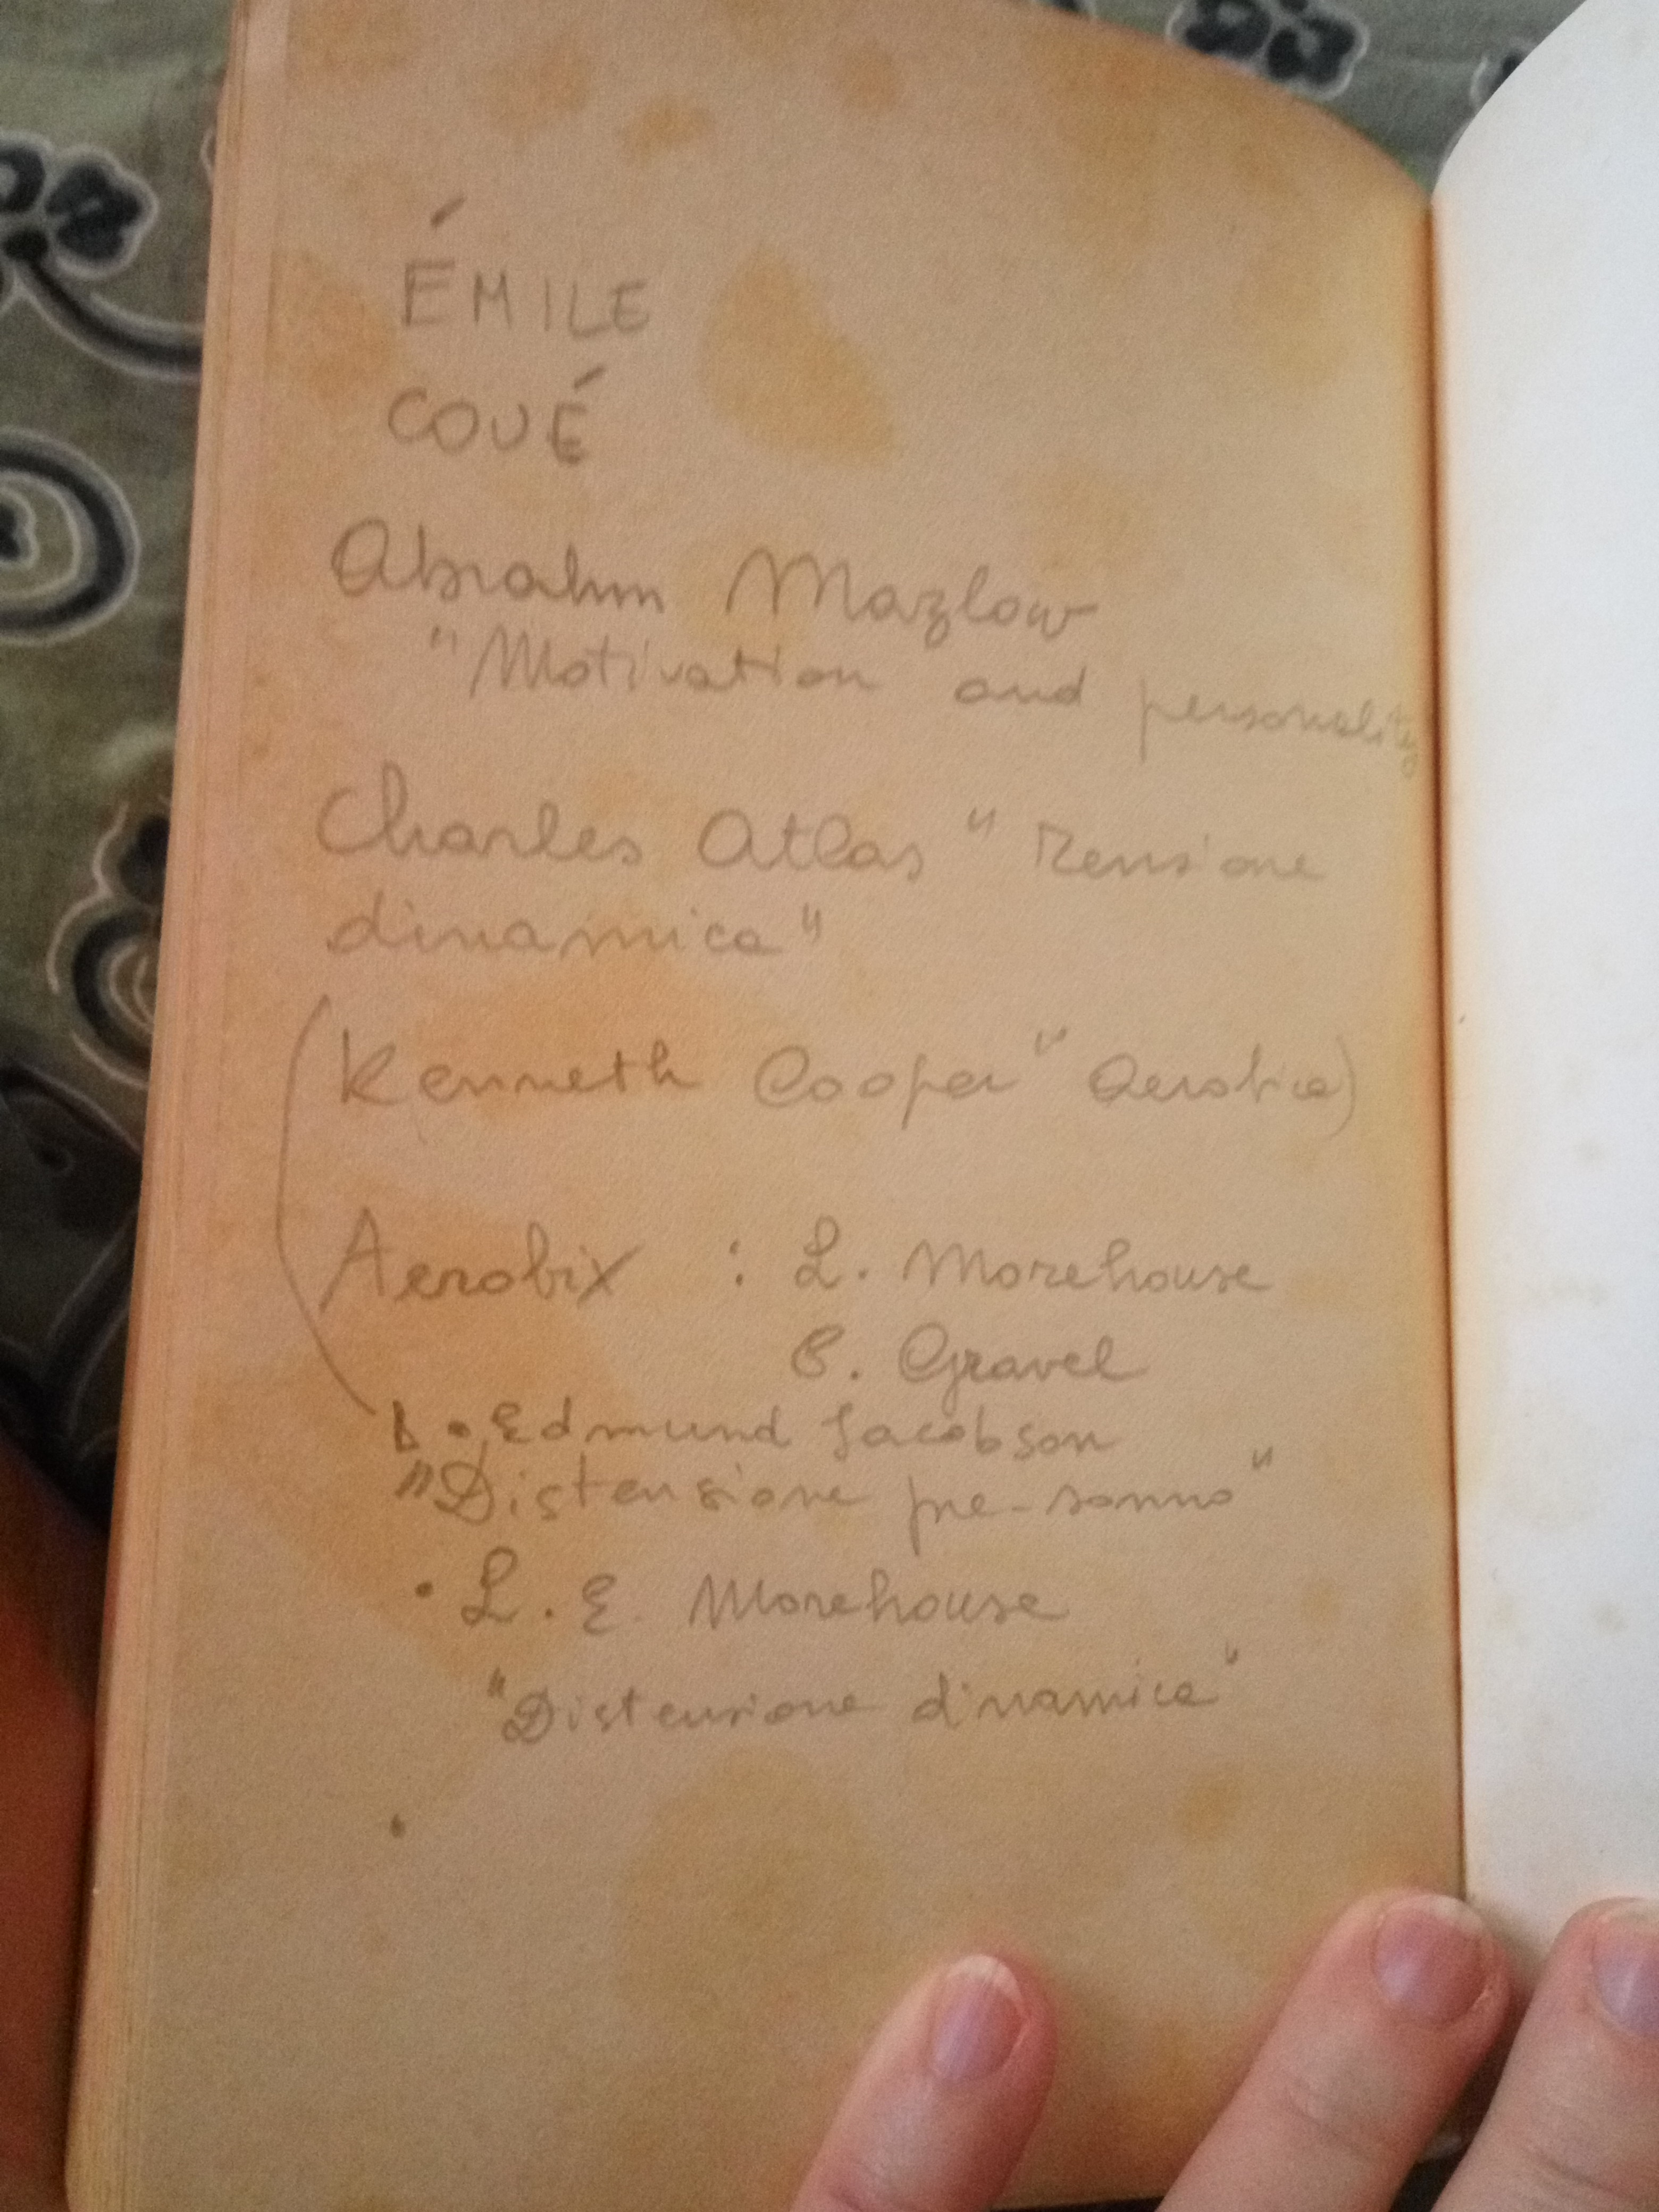 ÉMILE
COUÉ
Abrahm Mazlow
"Motivation and personality
Charles Atlas "Tensione
dinamica"
(Kenneth Cooper "Aerobica)
Aerobix : L. Morehouse
C. Gravel
Edmund Jacobson
"Distensione pre-sonno"
• L. E. Morehouse
"Distensione dinamica"